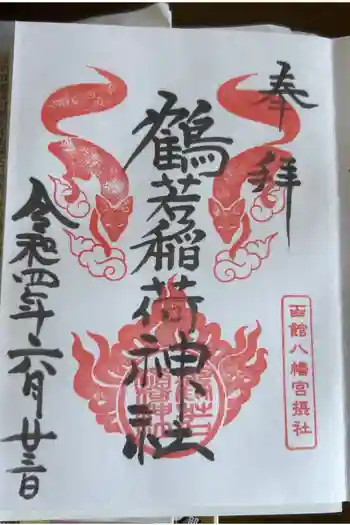 奉拝
函館八幡宮摂社
鶴若稲荷神社
令和四年六月廿三日